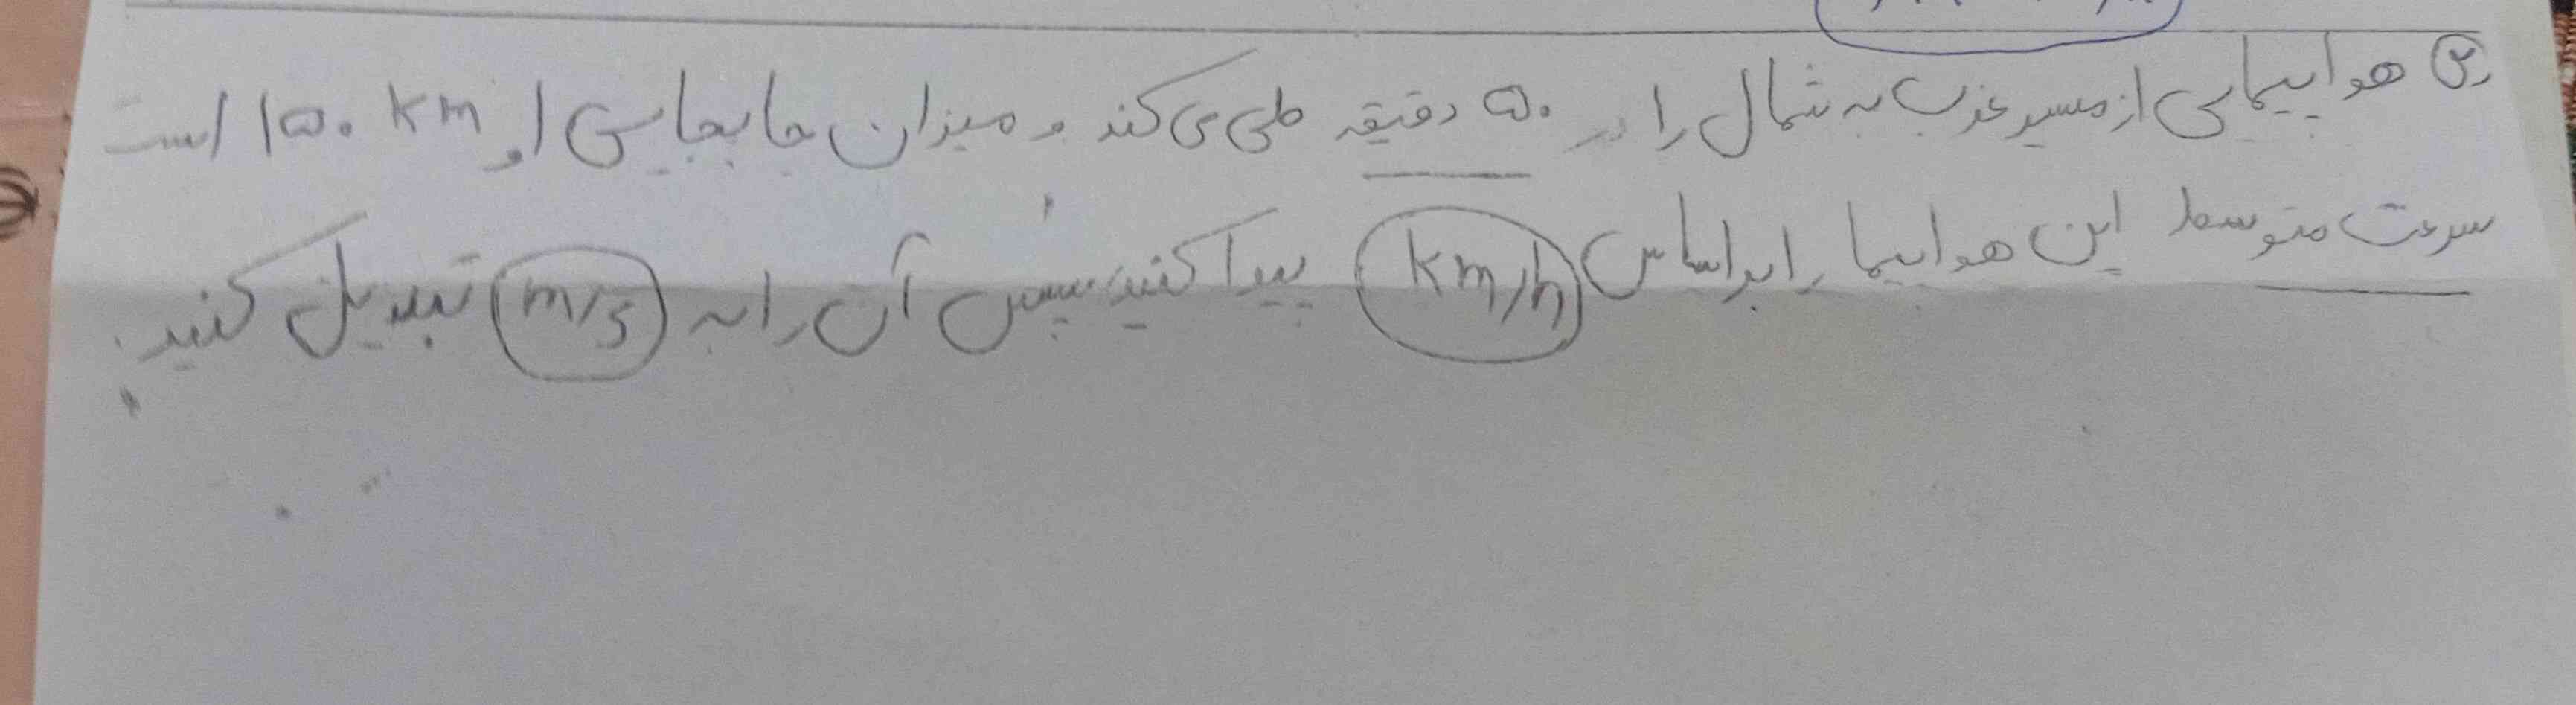 هواپیمایی از مسیر غرب به شمال را در ۵۰ دقیقه طی می کند و میزان جابجایی او ۱۵۰ km است
سرعت متوسط این هواپیما را براساس km/h پیدا کنید سپس آن را به m/s تبدیل کنید.